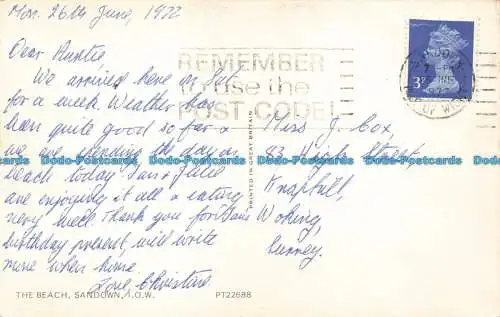 Mon. 26th June, 1972
Dear Auntie,
We arrived here on Sat.
for a week. Weather has
been quite good so far &
we are spending the day on
beach today. Ian & Julie
are enjoying it all & eating
very well. Thank you for Ians
birthday present, will write
more when home.
Love Christine
REMEMBER
to use the
POST CODE!
3P
Miss J. Cox,
83 High Street,
Knaphill,
Woking,
Surrey.
PRINTED IN GREAT BRITAIN
Dodo-Postcards Dodo-Postcards Dodo-Postcards Dodo-Postcards
THE BEACH, SANDOWN, I.O.W.
PT22688